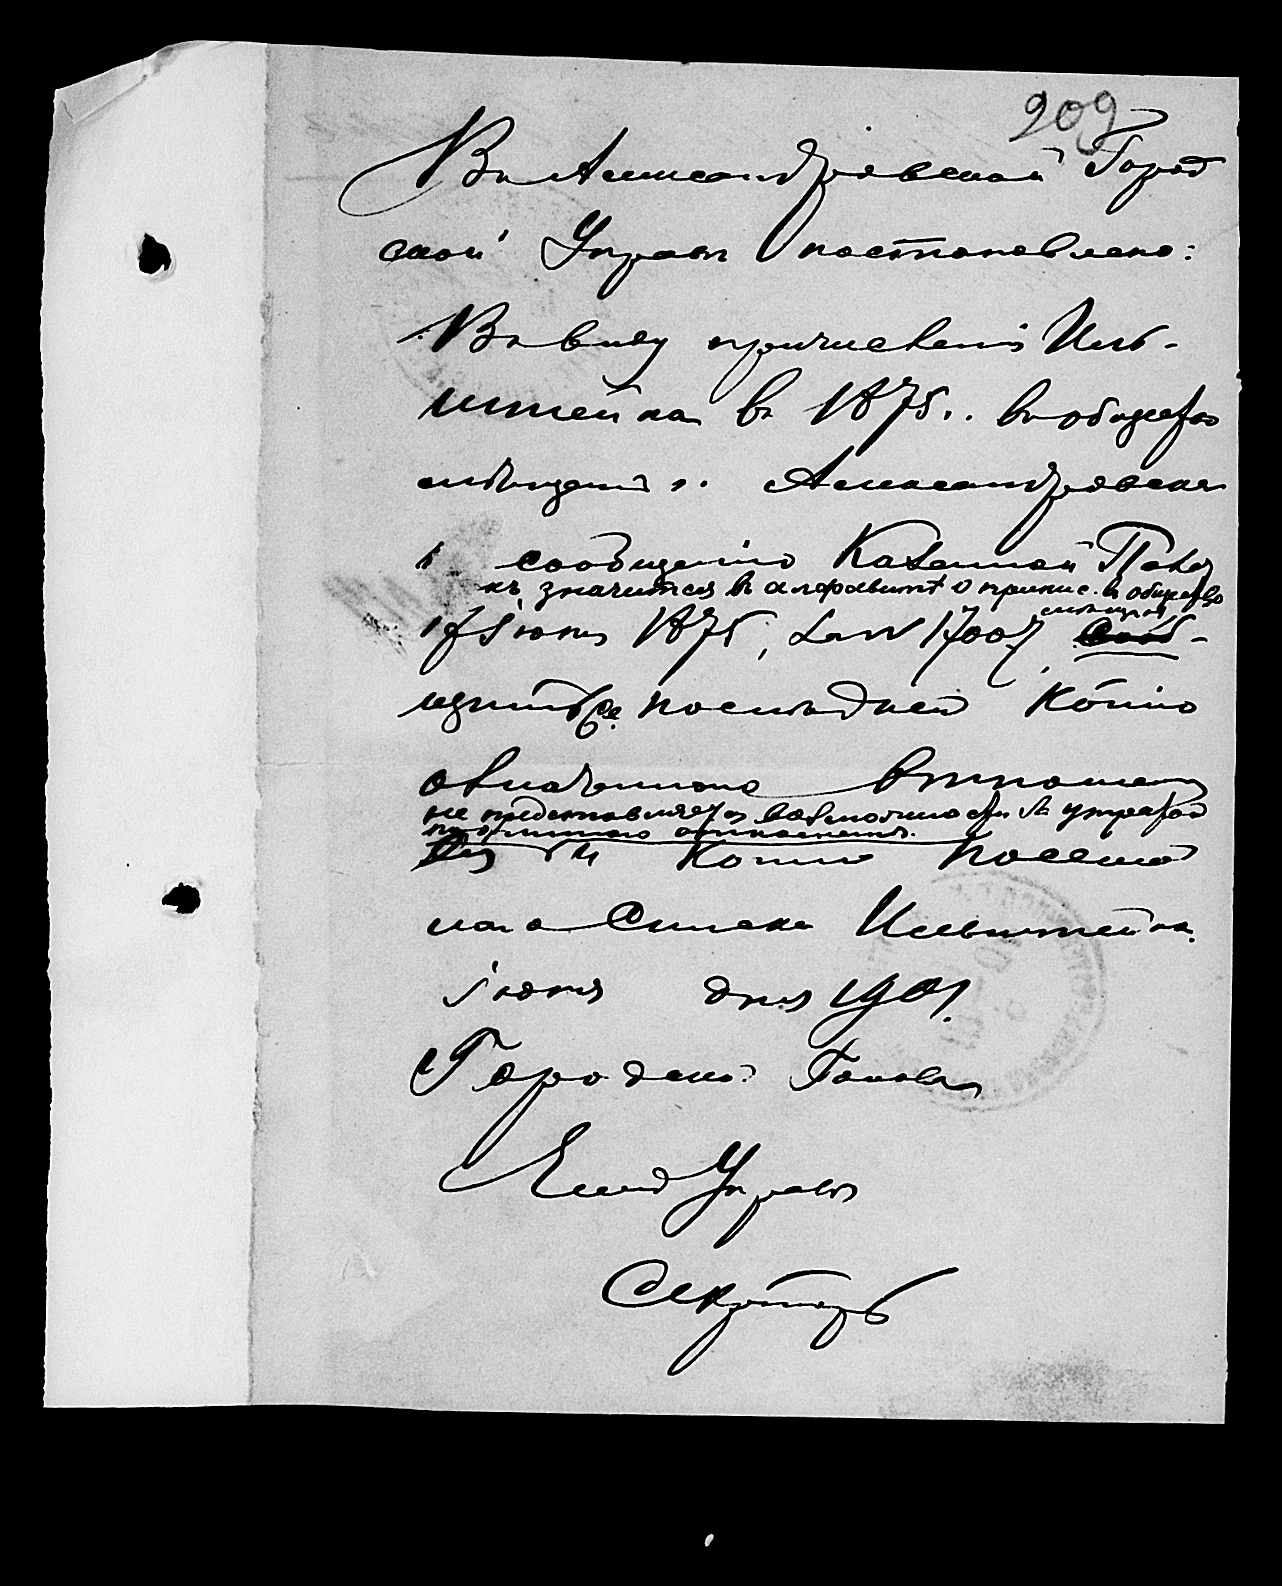 209
Въ Александровской Город
ской Управѣ постановлено:
Въ виду причисленія Иль-
штейна въ 1875 г. въ общество
мѣщанъ г. Александровска
сообщенію Казенной Палаты
какъ значится въ алфавитѣ о причис. въ общество
мѣщанъ
іюня 1875, за № 17007
послѣдней копію
означеннаго отношенія
не представляется возможности за утратой
отношенія.
и копію посемей
наго списка Ильштейна.
іюня дня 1901.
Городской Голова
Член Управы
Секретарь